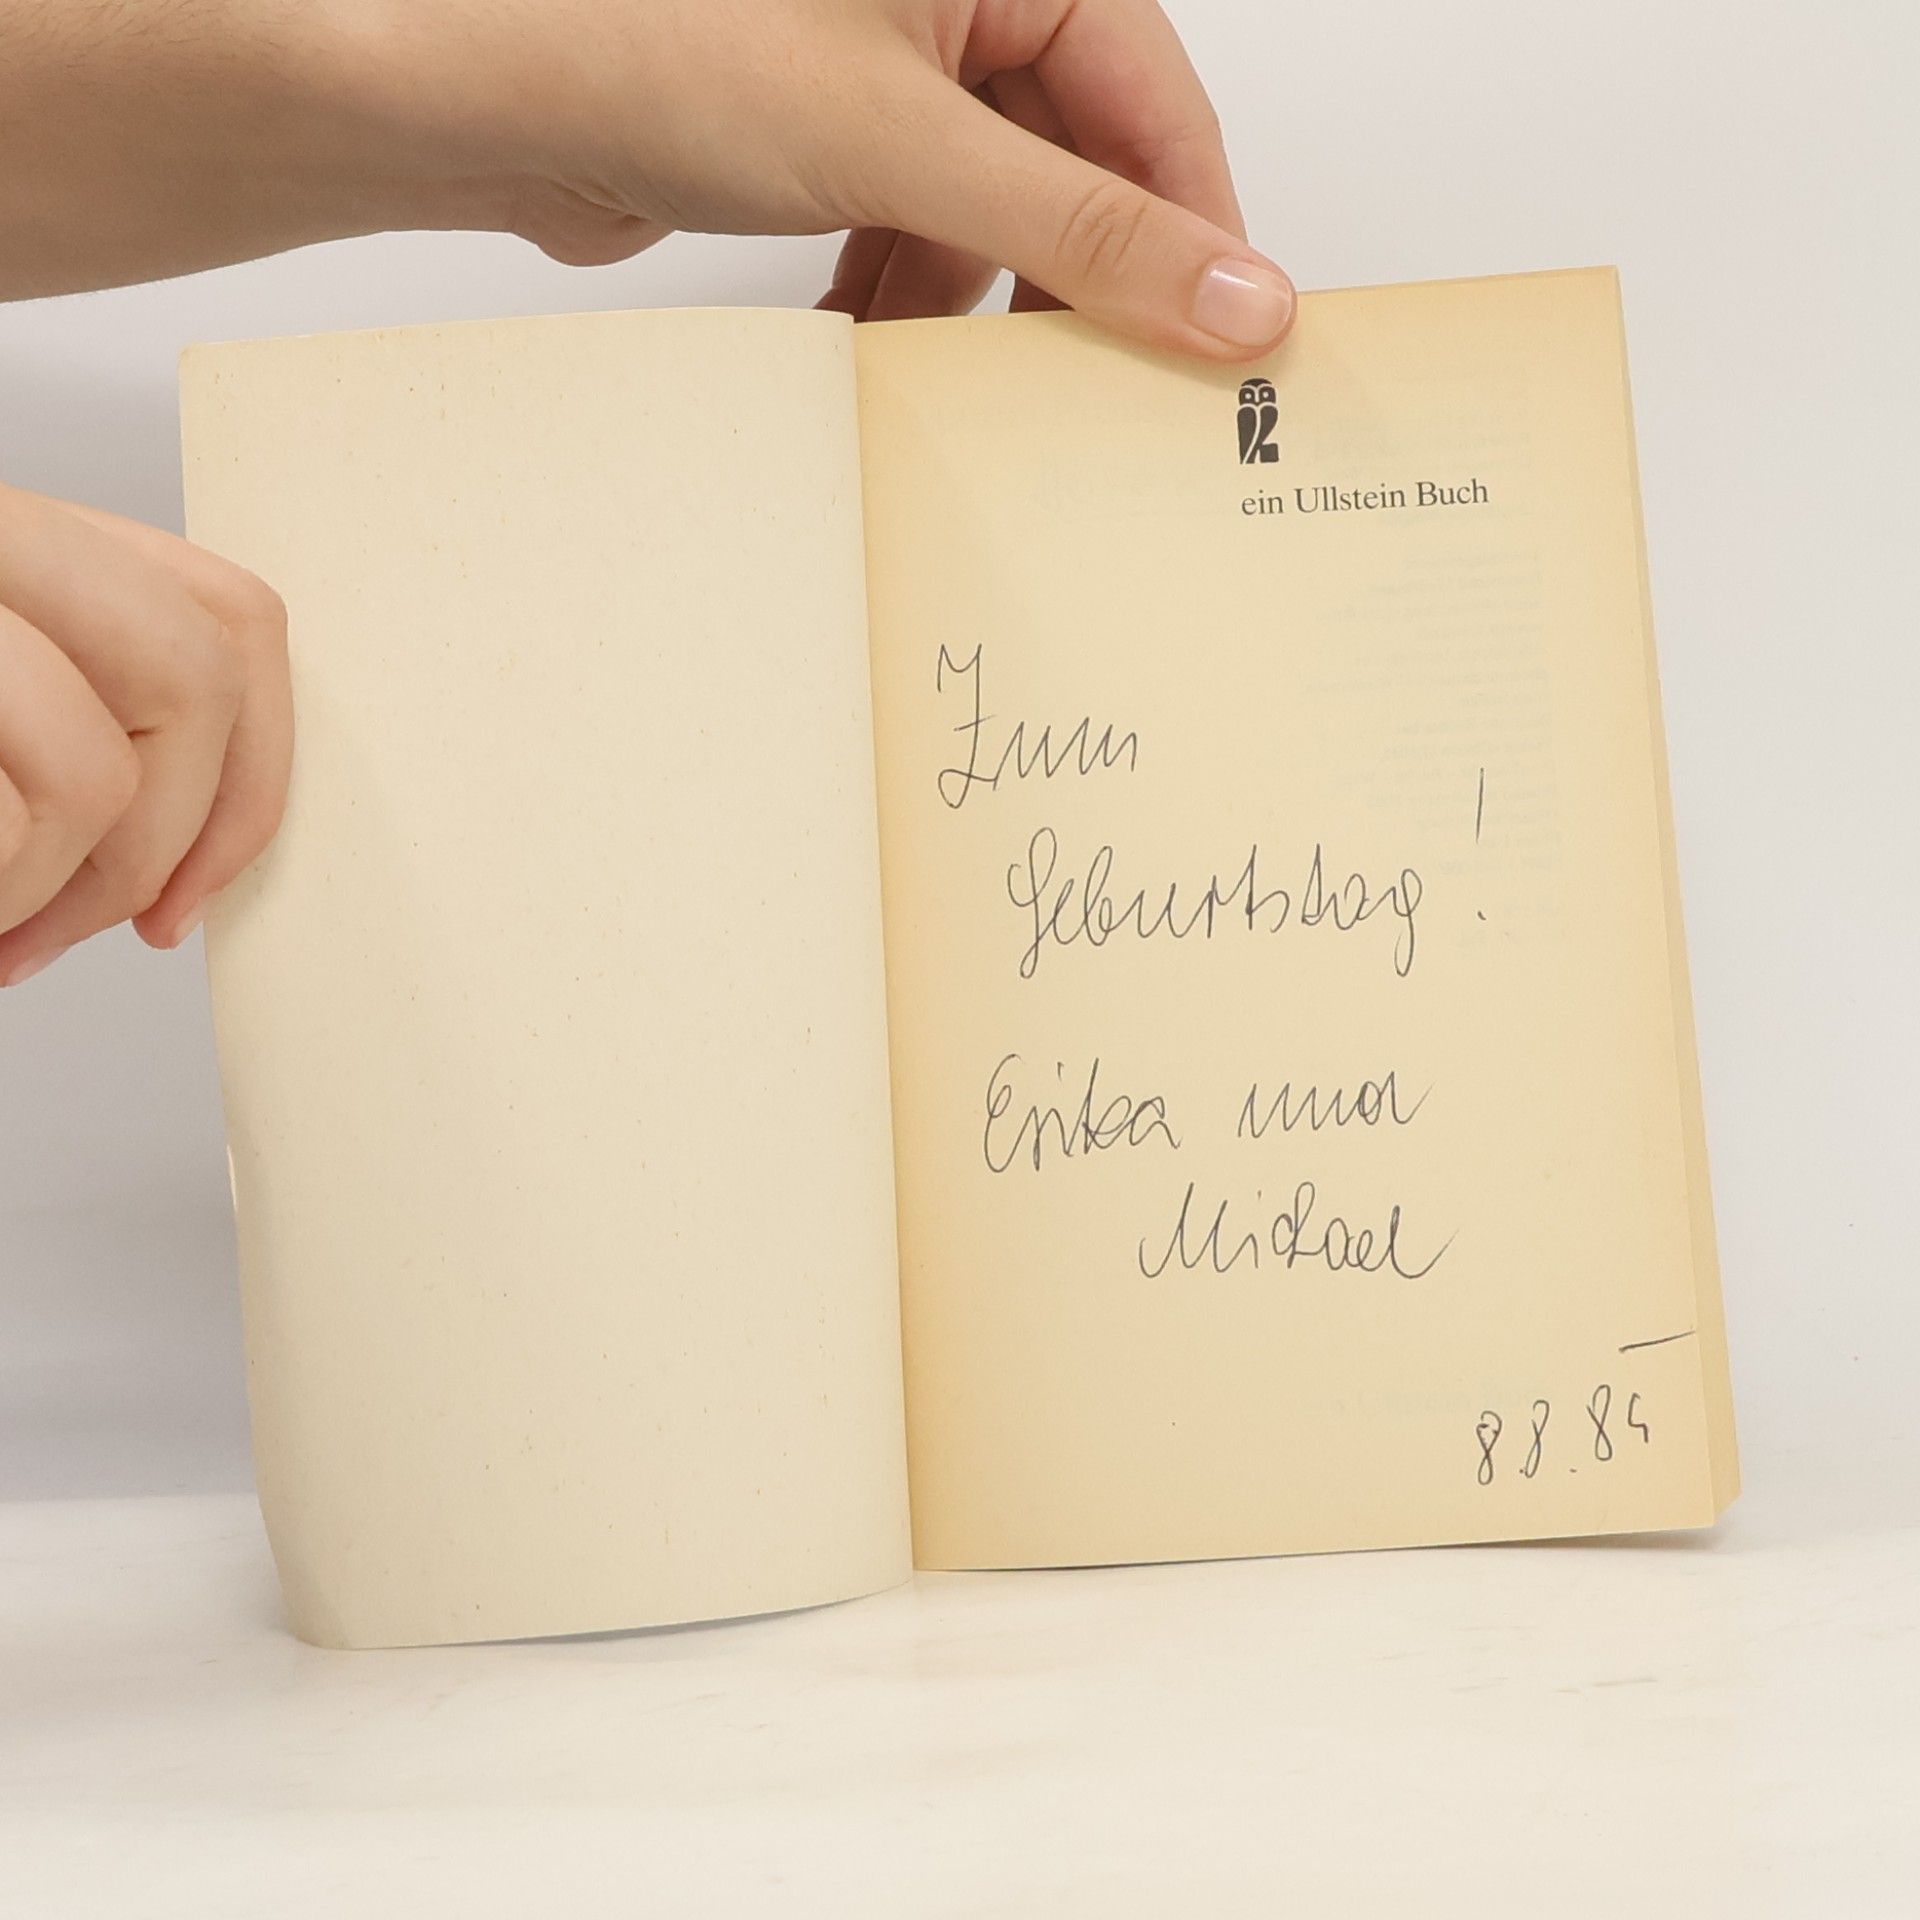 ein Ullstein Buch
Zum
Geburtstag!
Erika und
Michael
8.8.85